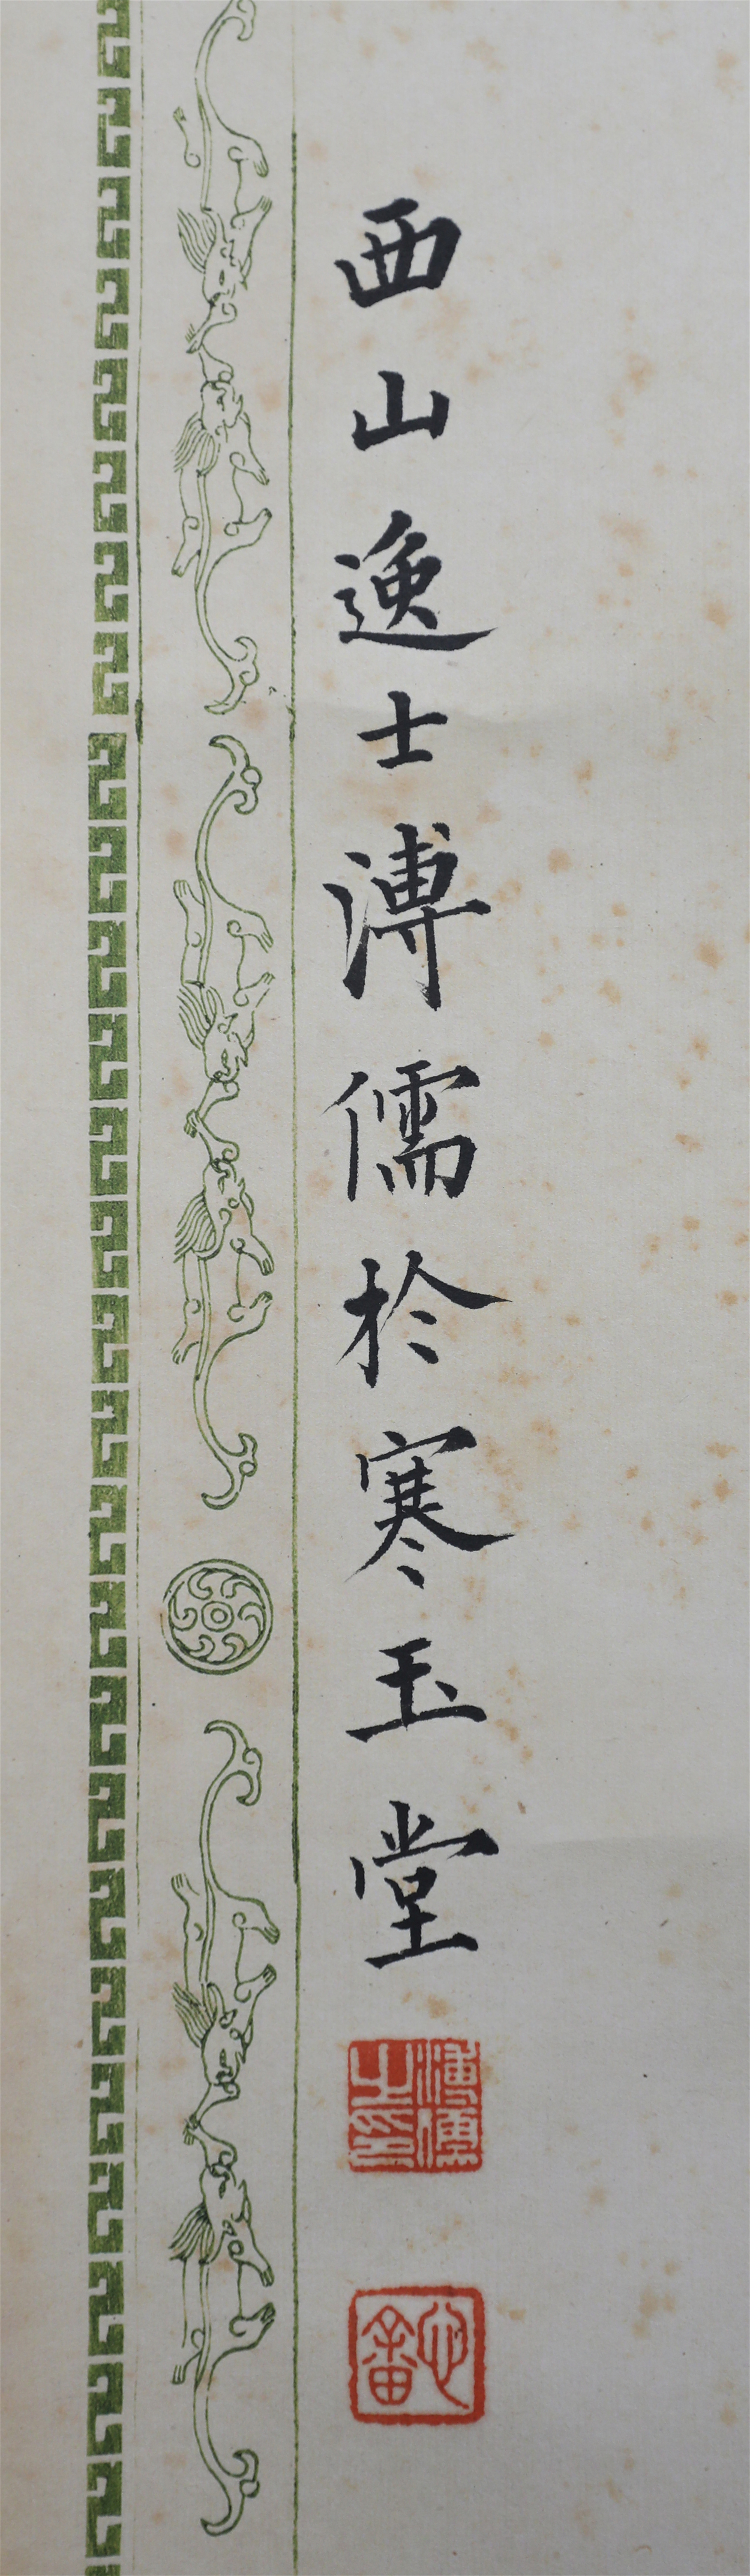 西山逸士溥儒於寒玉堂
溥儒之印
心畬